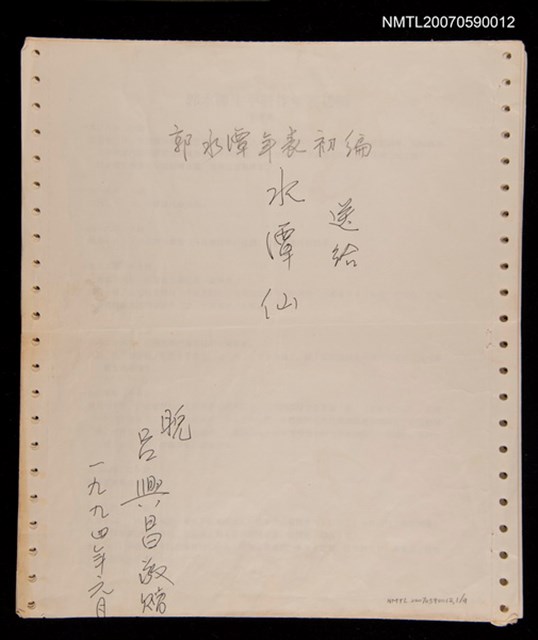 NMTL20070590012
郭水潭年表初編
送給
水潭仙
晚
呂興昌敬贈
一九九四年元月
NMTL20070590012,1/9